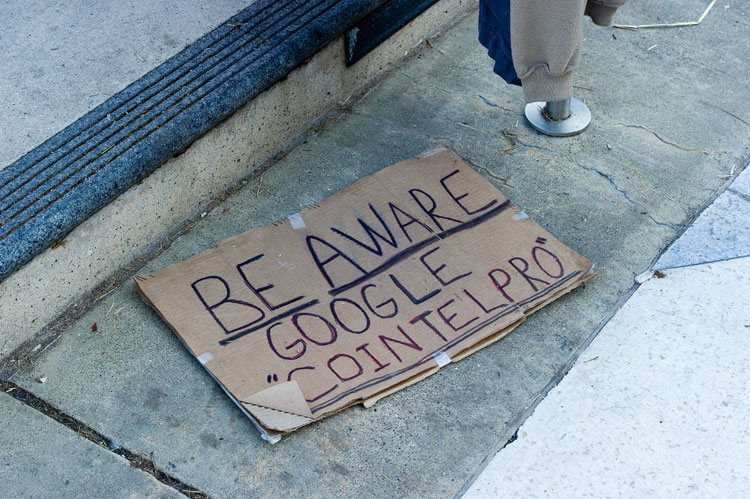 BE AWARE
GOOGLE
"COINTELPRO"